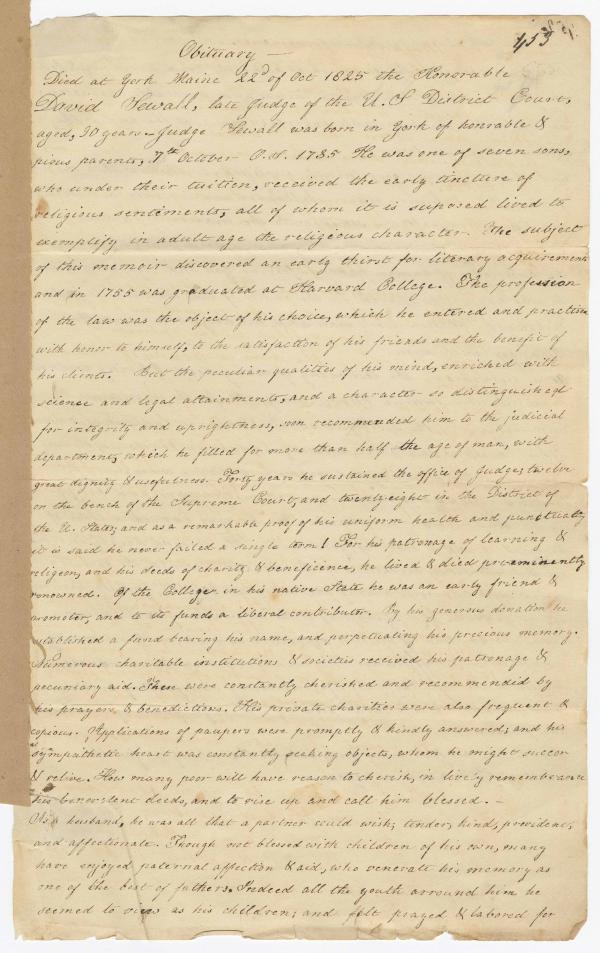 453
Obituary —
Died at York Maine 22d of Oct 1825 the Honorable
David Sewall, late Judge of the U. S District Court,
aged, 90 years - Judge Sewall was born in York of honrable &
pious parents, 7th October O.S. 1735 He was one of seven sons,
who under their tuition, received the early tincture of
religious sentiments, all of whom it is suposed lived to
exemplify in adult age the religious character. The subject
of this memoir discovered an early thirst for literary acquirements
and in 1755 was graduated at Harvard College. The profession
of the law was the object of his choice, which he entered and practised
with honor to himself, to the satisfaction of his friends and the benefit of
his clients. But the peculiar qualities of his mind, enriched with
science and legal attainments, and a character so distinguished
for integrity and uprightness, soon recommended him to the judicial
department, which he filled for more than half the age of man, with
great dignity & usefulness. Forty years he sustained the office of Judge, twelve
on the bench of the Supreme Court, and twenty eight in the District of
the U. States, and as a remarkable proof of his uniform health and punctuality
it is said he never failed a single term! For his patronage of learning &
religeon, and his deeds of charity & beneficence, he lived & died pre-eminently
renowned. Of the College in his native State he was an early friend &
promoter, and to its funds a liberal contributer. By his generous donation he
established a fund bearing his name, and perpetuating his precious memory.
Numerous charitable institutions & societies received his patronage &
pecuniary aid. These were constantly cherished and recommendid by
his prayers & benedictions. His private charities were also frequent &
copious. Applications of paupers were promptly & kindly answered; and his
sympathetic heart was constantly seeking objects, whom he might succor
& relive. How many poor will have reason to cherish, in lively remembrance
his benevolent deeds, and to rise up and call him blessed. -
As a husband, he was all that a partner could wish; tender, kind, provident,
and affectionate. Though not blessed with children of his own, many
have enjoyed paternal affection & aid, who venerate his memory as
one of the best of fathers. Indeed all the youth arround him he
seemed to view as his children; and felt prayed & labored for